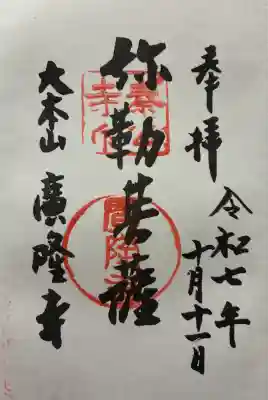 奉拝
令和七年
十月十一日
弥勒菩薩
大本山 廣隆寺